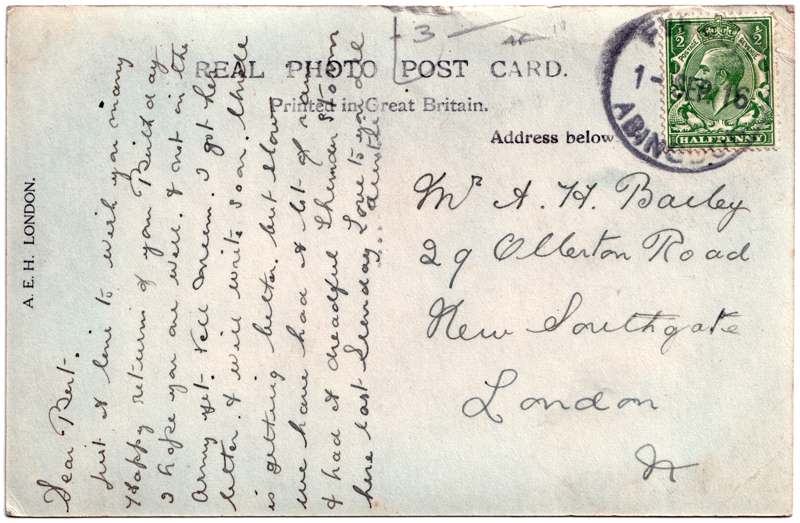 REAL PHOTO POST CARD.
Printed in Great Britain.
Address below
A. E. H. LONDON.
1- SEP 16
ABINGDON
POSTAGE
½ ½
HALFPENNY
3
Mr A. H. Bailey
29 Ollerton Road
New Southgate
London
N
Dear Bert-
Just a line to wish you many
Happy returns of your Birthday
I hope you are well. & not in the
Army yet. Tell Mum. I got her
letter. & will write soon. Uncle
is getting better. but slow
we have had a lot of rain
& had a dreadful Thunder Storm
here last Sunday Love to you all
Auntie